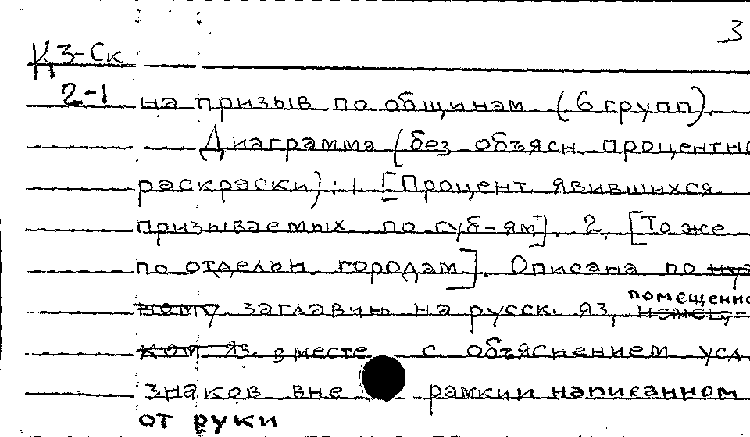 3
К3-Ск
2-1 на призыв по общинам (6 групп).
Диаграмма (без объясн. процентно
раскраски): 1 [Процент явившихся
призываемых по губ-ям]. 2. [То же
по отделън. городам]. Описана по
ному заглавию на русск. яз,
помещенно
ком яз. вместе с объяснением усл.
знаков вне рамкии написанном
от руки